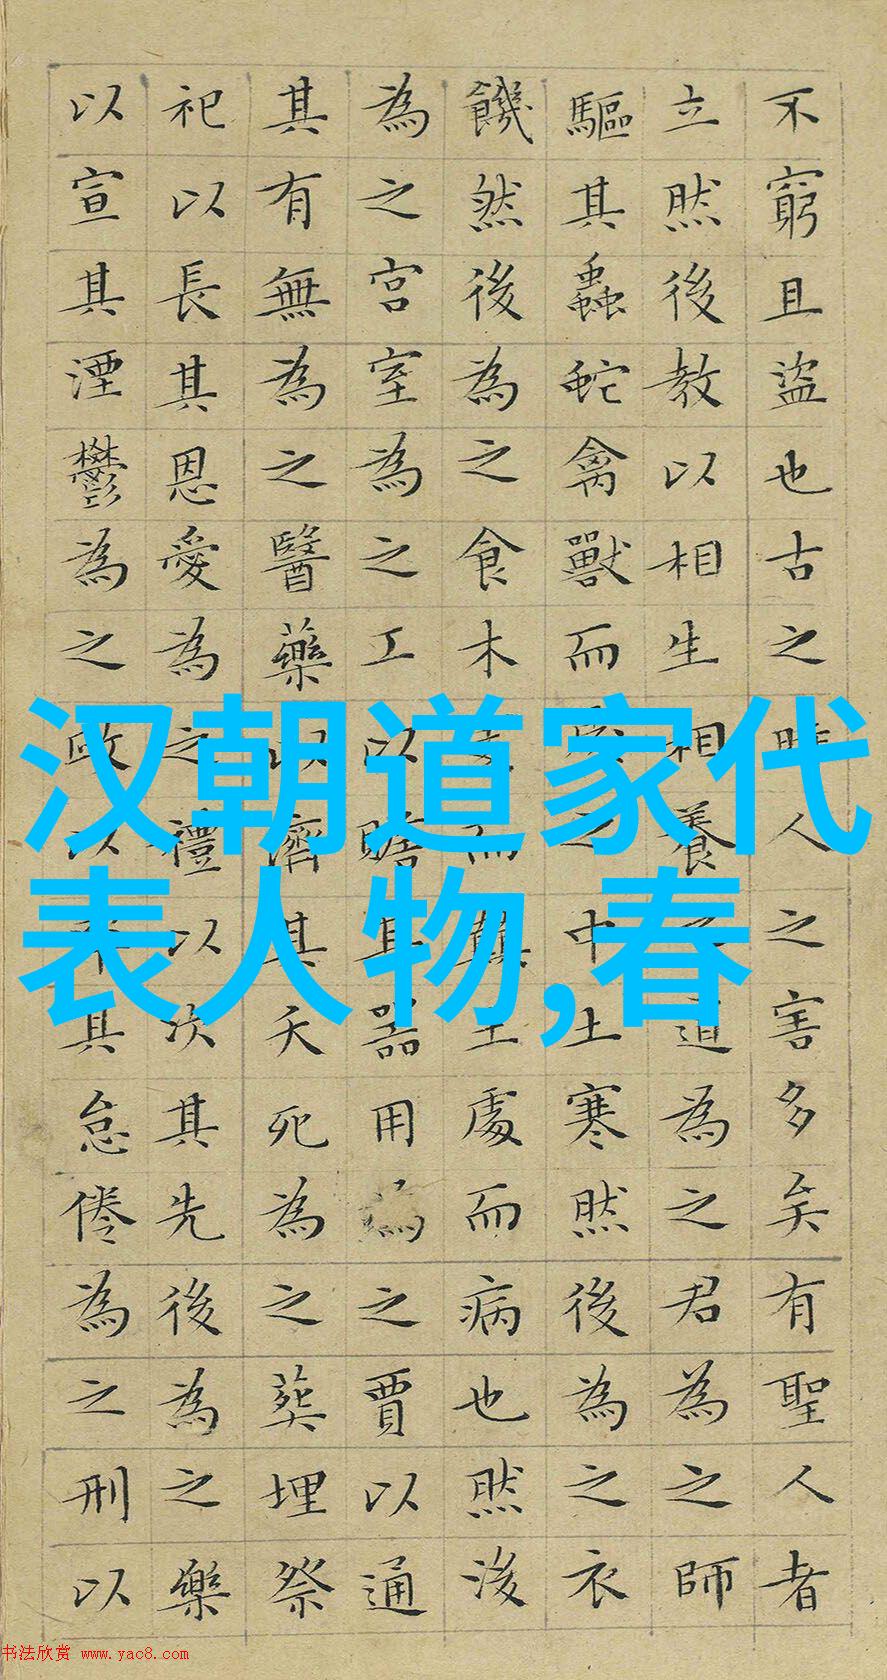 不窮且盜也古之時人之害多矣有聖人者
立然後教以相生相養道為之君為之師
驅其蟲蛇禽獸而之中土寒然後為之衣
饑然後為之食木而顛土處而病也然後
為之宮室為之工以贍其器用為之賈以通
其有無為之醫藥以濟其夭死為之葬埋祭
祀以長其恩愛為之禮以次其先後為之樂
以宣其湮鬱為之政以其怠倦為之刑以
汉朝道家代
表人物,春
书法欣赏 www.yac8.com